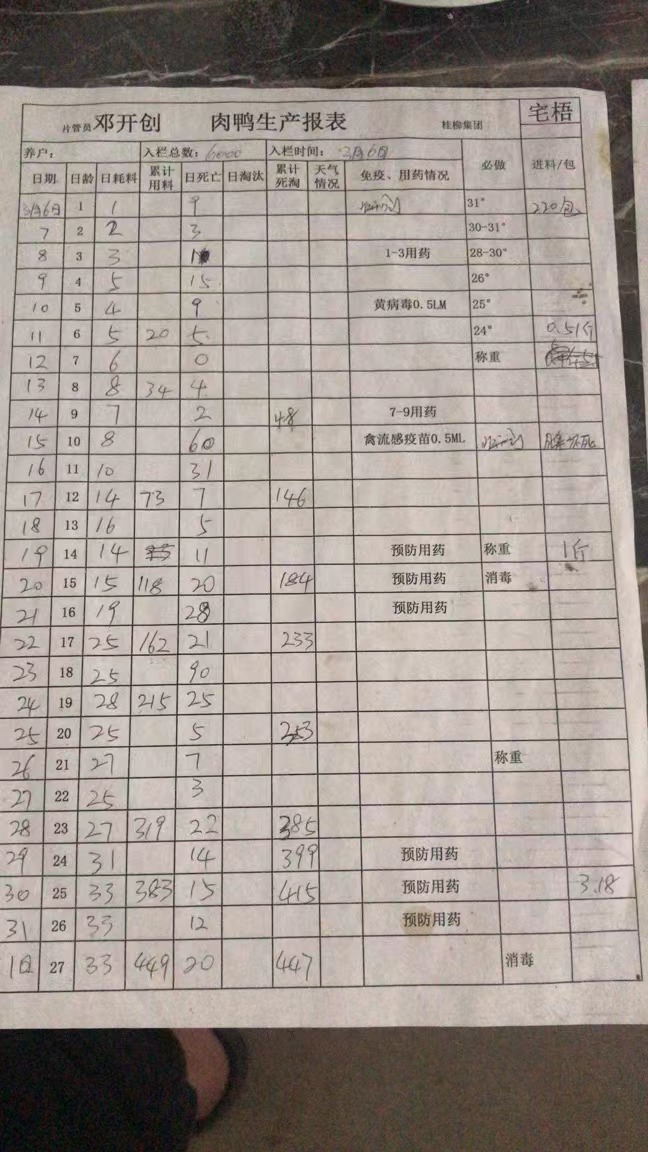 片管员 邓开创 肉鸭生产报表 桂柳集团 宅梧
养户： 入栏总数：6000 入栏时间：3月6日
日期 日龄 日耗料 累计用料 日死亡 日淘汰 累计死淘 天气情况 免疫、用药情况 必做 进料/包
3月6日 1 1 9 31° 220包
7 2 2 3 30-31°
8 3 3 1-3用药 28-30°
9 4 5 15 26°
10 5 4 9 黄病毒0.5LM 25°
11 6 5 20 5 24° 0.51斤
12 7 6 0 称重
13 8 8 34 4
14 9 7 2 48 7-9用药
15 10 8 60 禽流感疫苗0.5ML
16 11 10 31
17 12 14 73 7 146
18 13 16 5
19 14 14 11 预防用药 称重 1斤
20 15 15 118 20 184 预防用药 消毒
21 16 19 28 预防用药
22 17 25 162 21 233
23 18 25 90
24 19 28 215 25
25 20 25 5 353
26 21 27 7 称重
27 22 25 3
28 23 27 319 22 385
29 24 31 14 399 预防用药
30 25 33 383 15 415 预防用药 3.18
31 26 33 12 预防用药
1日 27 33 449 20 447 消毒